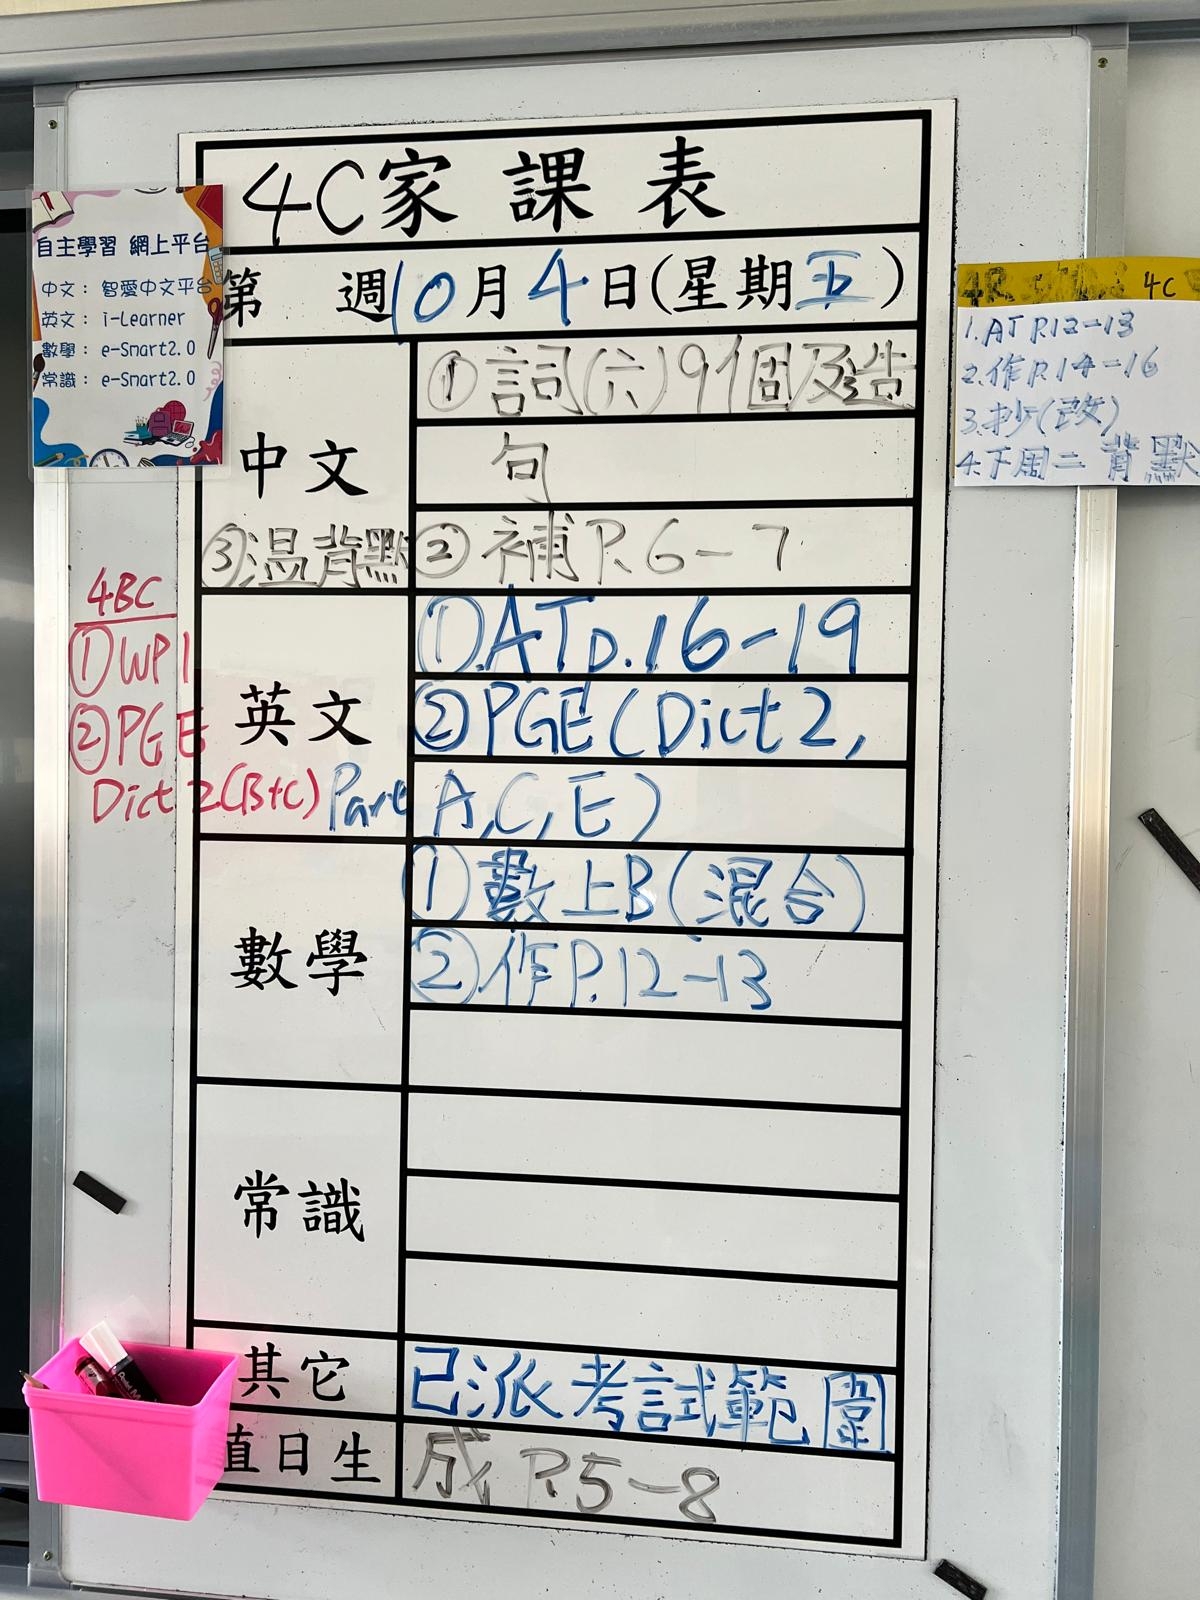 4C家課表
第 週10月4日(星期五)
中文
①詞(六)9個及造
句
②補P.6-7
③温背默
英文
①.ATp.16-19
②PGE(Dict 2,
Part A,C,E)
數學
①數上B(混合)
②作P.12-13
常識
其它
已派考試範圍
值日生
成P.5-8
自主學習 網上平台
中文：智愛中文平台
英文：i-Learner
數學：e-Smart2.0
常識：e-Smart2.0
4BC
①WP1
②PGE
Dict 2(B+C)
4C
1.AT P.12-13
2.作P.14-16
3.抄(改)
4.下周二背默